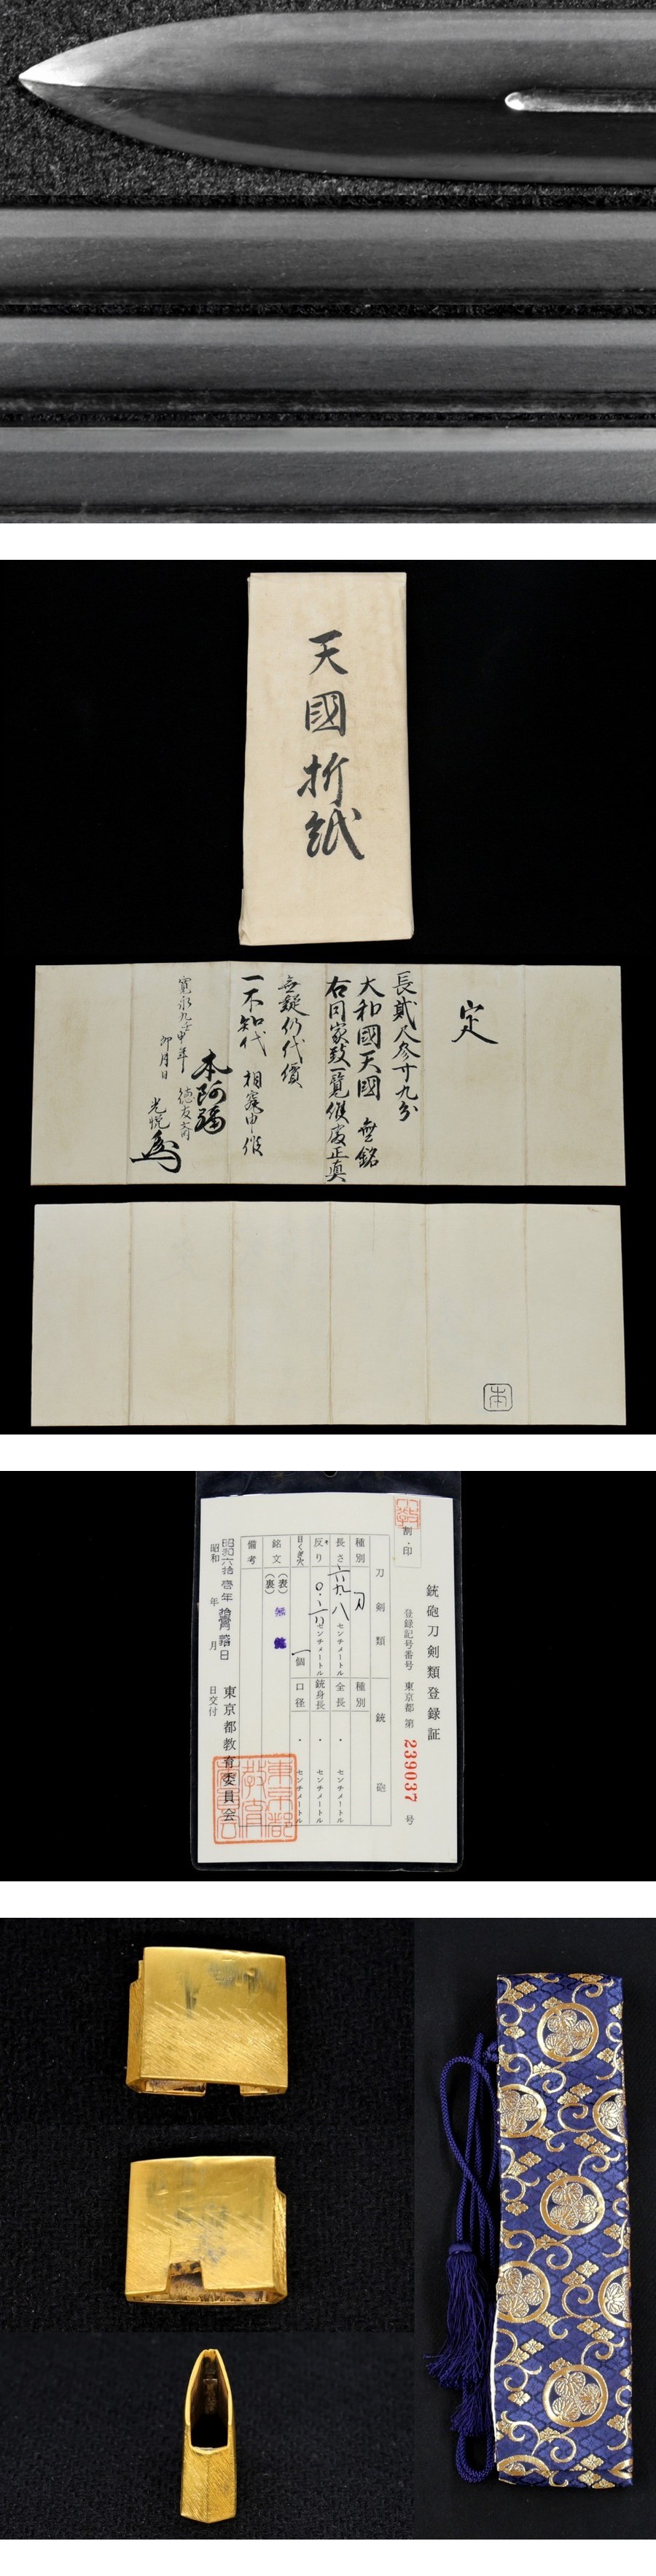 天國折紙
定
長貳尺参寸九分
大和國天國 無銘
右同家致一覧候處正真
無疑仍代價
一不知代 相窮申候
寛永九壬申年
卯月日
本阿彌
徳友斎
光悦
本
銃砲刀剣類登録証
登録記号番号 東京都 第 239037 号
割・印
刀剣類
銃砲
種別 刀
種別
長さ 六九・八 センチメートル
全長 ・ センチメートル
反り 〇・二 センチメートル
銃身長 ・ センチメートル
目くぎ穴 一個
口径 ・ センチメートル
銘文 (表)
(裏)
備考
昭和六拾壱年
昭和 年 月 日交付
東京都教育委員会